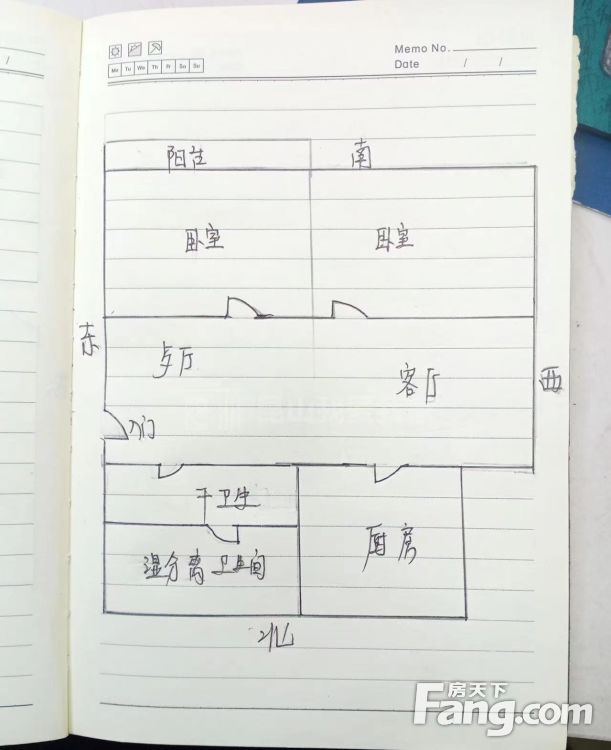 Memo No.
Mo Tu We Th Fr Sa Su
Date / /
阳台
南
卧室
卧室
东
歺厅
客厅
西
入门
干卫生
厨房
湿分离卫生间
北
房天下
Fang.com